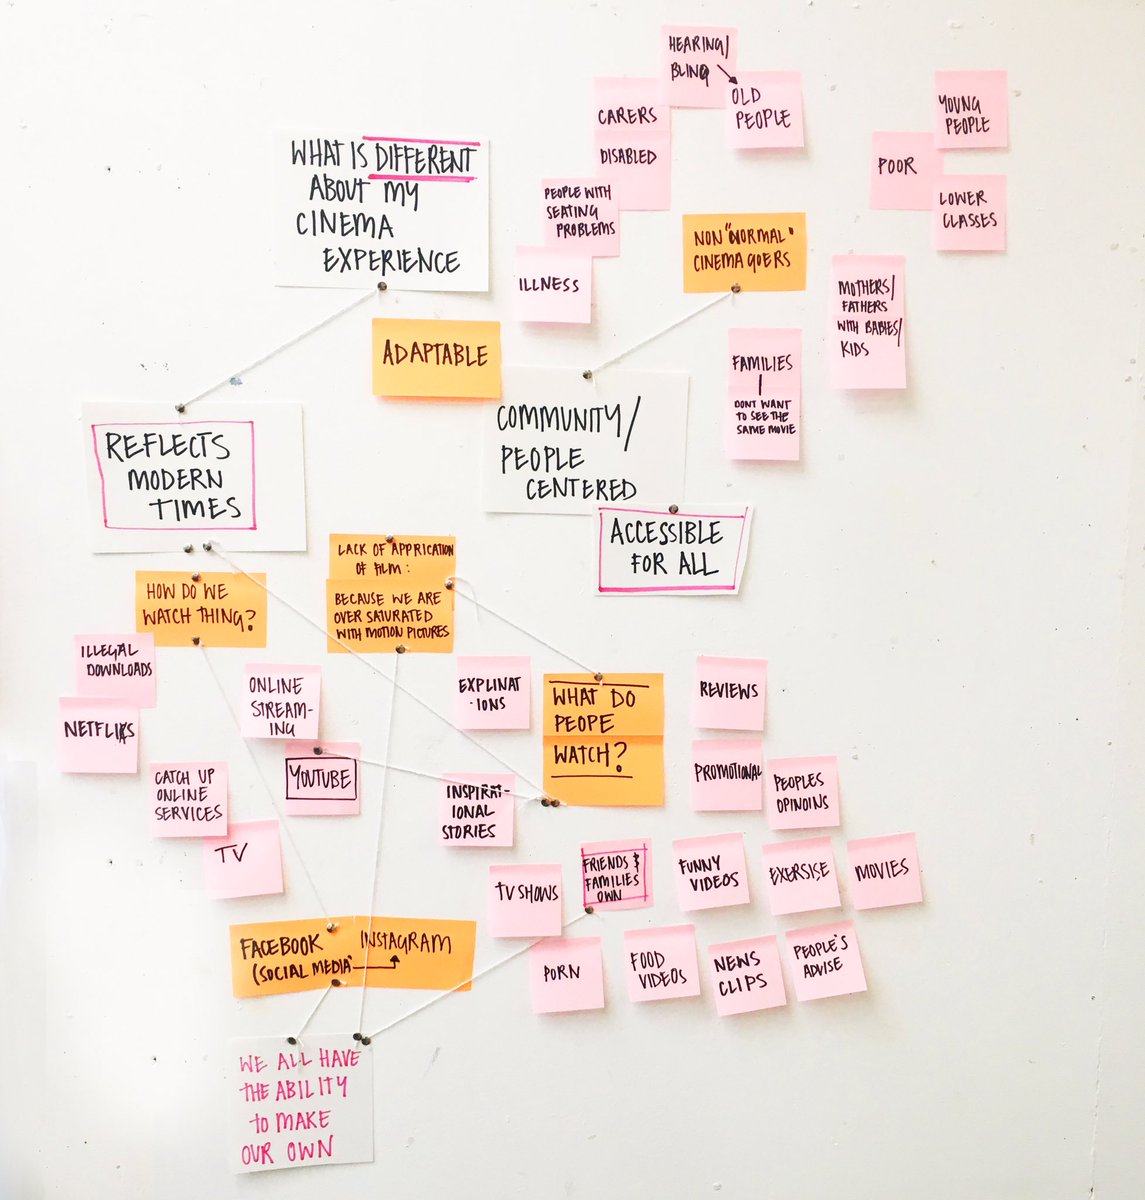 WHAT IS DIFFERENT
ABOUT MY
CINEMA
EXPERIENCE
HEARING/
BLIND
OLD
PEOPLE
CARERS
DISABLED
PEOPLE WITH
SEATING
PROBLEMS
ILLNESS
NON "NORMAL"
CINEMA GOERS
YOUNG
PEOPLE
POOR
LOWER
CLASSES
MOTHERS/
FATHERS
WITH BABIES/
KIDS
FAMILIES
DONT WANT
TO SEE THE
SAME MOVIE
ADAPTABLE
COMMUNITY/
PEOPLE
CENTERED
ACCESSIBLE
FOR ALL
REFLECTS
MODERN
TIMES
HOW DO WE
WATCH THING?
LACK OF APPRICATION
OF FILM:
BECAUSE WE ARE
OVER SATURATED
WITH MOTION PICTURES
ILLEGAL
DOWNLOADS
NETFLIXS
ONLINE
STREAM-
ING
YOUTUBE
CATCH UP
ONLINE
SERVICES
TV
EXPLINAT
-IONS
INSPIRAT-
IONAL
STORIES
WHAT DO
PEOPE
WATCH?
REVIEWS
PROMOTIONAL
PEOPLES
OPINOINS
TV SHOWS
FRIENDS &
FAMILIES
OWN
FUNNY
VIDEOS
EXERSISE
MOVIES
PORN
FOOD
VIDEOS
NEWS
CLIPS
PEOPLE'S
ADVISE
FACEBOOK
(SOCIAL MEDIA"
INSTAGRAM
WE ALL HAVE
THE ABILITY
TO MAKE
OUR OWN